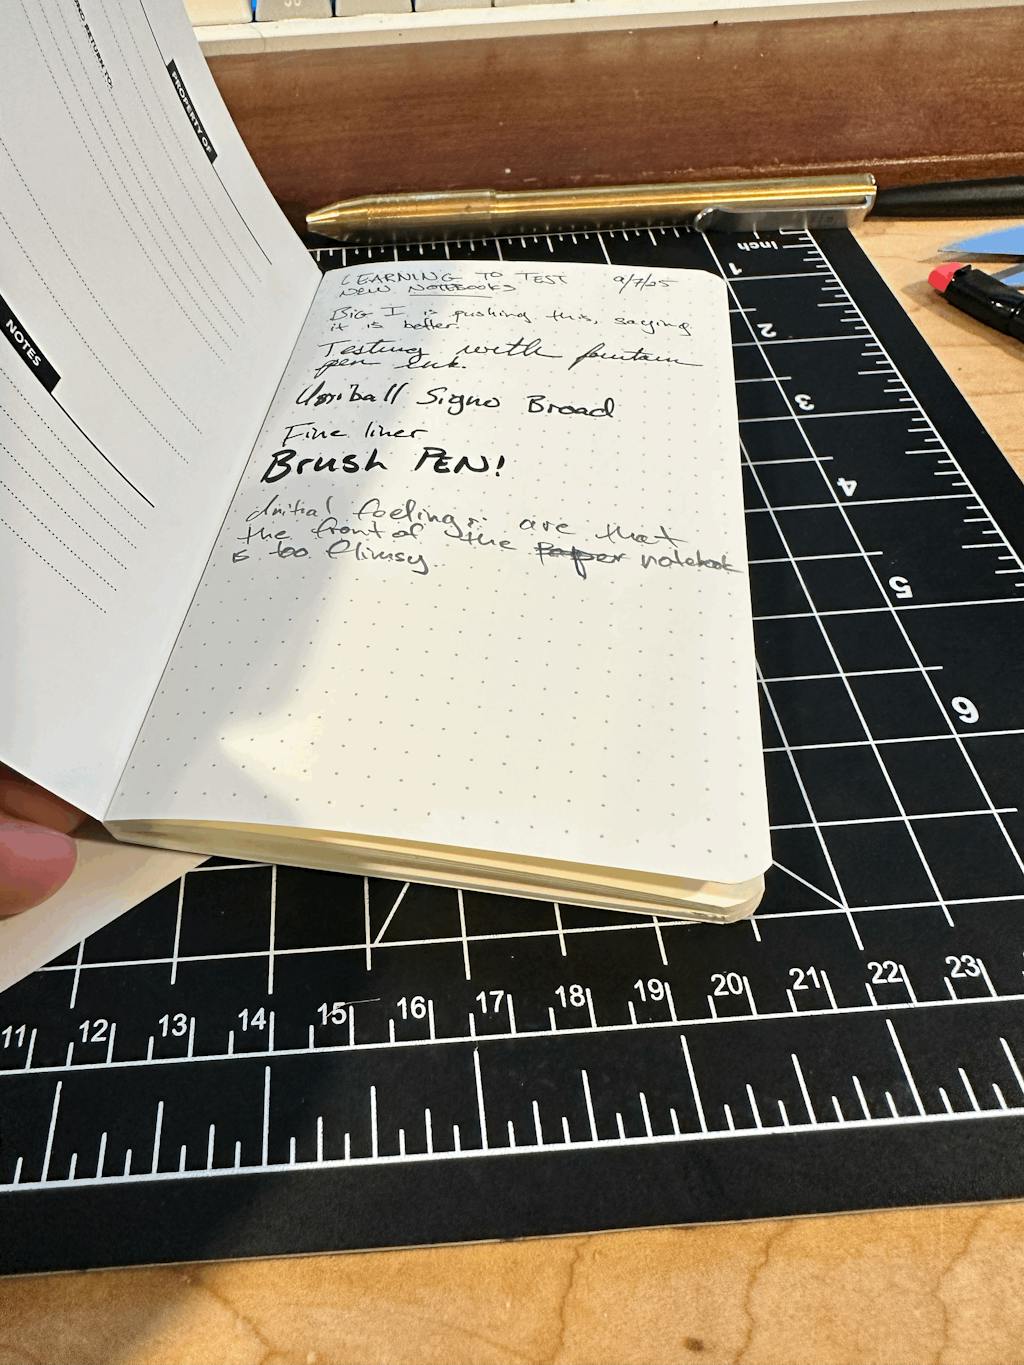 RETURN TO:
PROPERTY OF
NOTES
LEARNING TO TEST 9/7/25
NEW NOTEBOOKS
Big I is pushing this, saying
it is better.
Testing with fountain
pen ink.
Uniball Signo Broad
Fine liner
Brush PEN!
Initial feelings: are that
the front of the paper notebook
is too flimsy
Inch
1
2
3
4
5
6
11 12 13 14 15 16 17 18 19 20 21 22 23